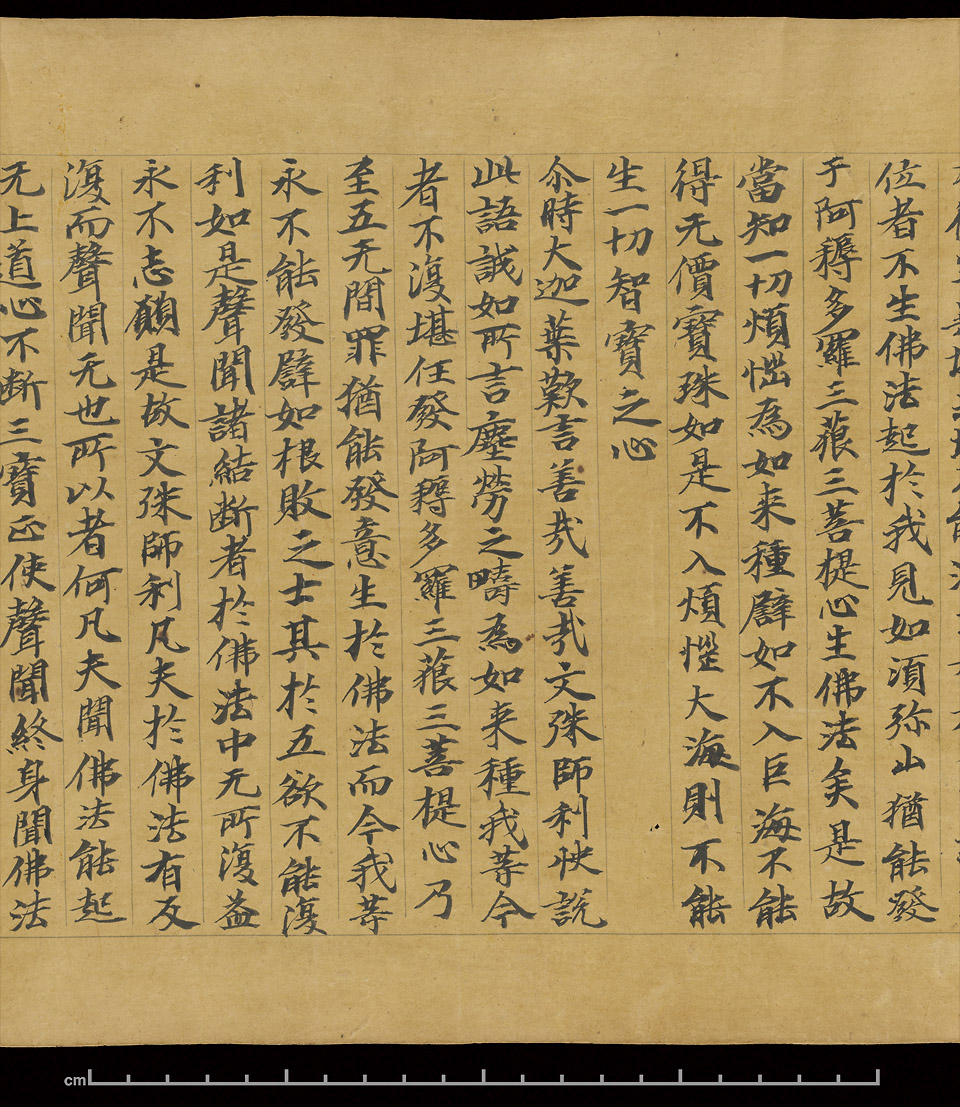 位者不生佛法起於我見如須弥山猶能發
于阿耨多羅三藐三菩提心生佛法矣是故
當知一切煩惱為如来種譬如不入巨海不能
得无價寶珠如是不入煩惱大海則不能
生一切智寶之心
尒時大迦葉歎言善哉善哉文殊師利快說
此語誠如所言塵勞之疇為如来種我等今
者不復堪任發阿耨多羅三藐三菩提心乃
至五无間罪猶能發意生於佛法而今我等
永不能發譬如根敗之士其於五欲不能復
利如是聲聞諸結断者於佛法中无所復益
永不志願是故文殊師利凡夫於佛法有反
復而聲聞无也所以者何凡夫聞佛法能起
无上道心不断三寶正使聲聞終身聞佛法
cm